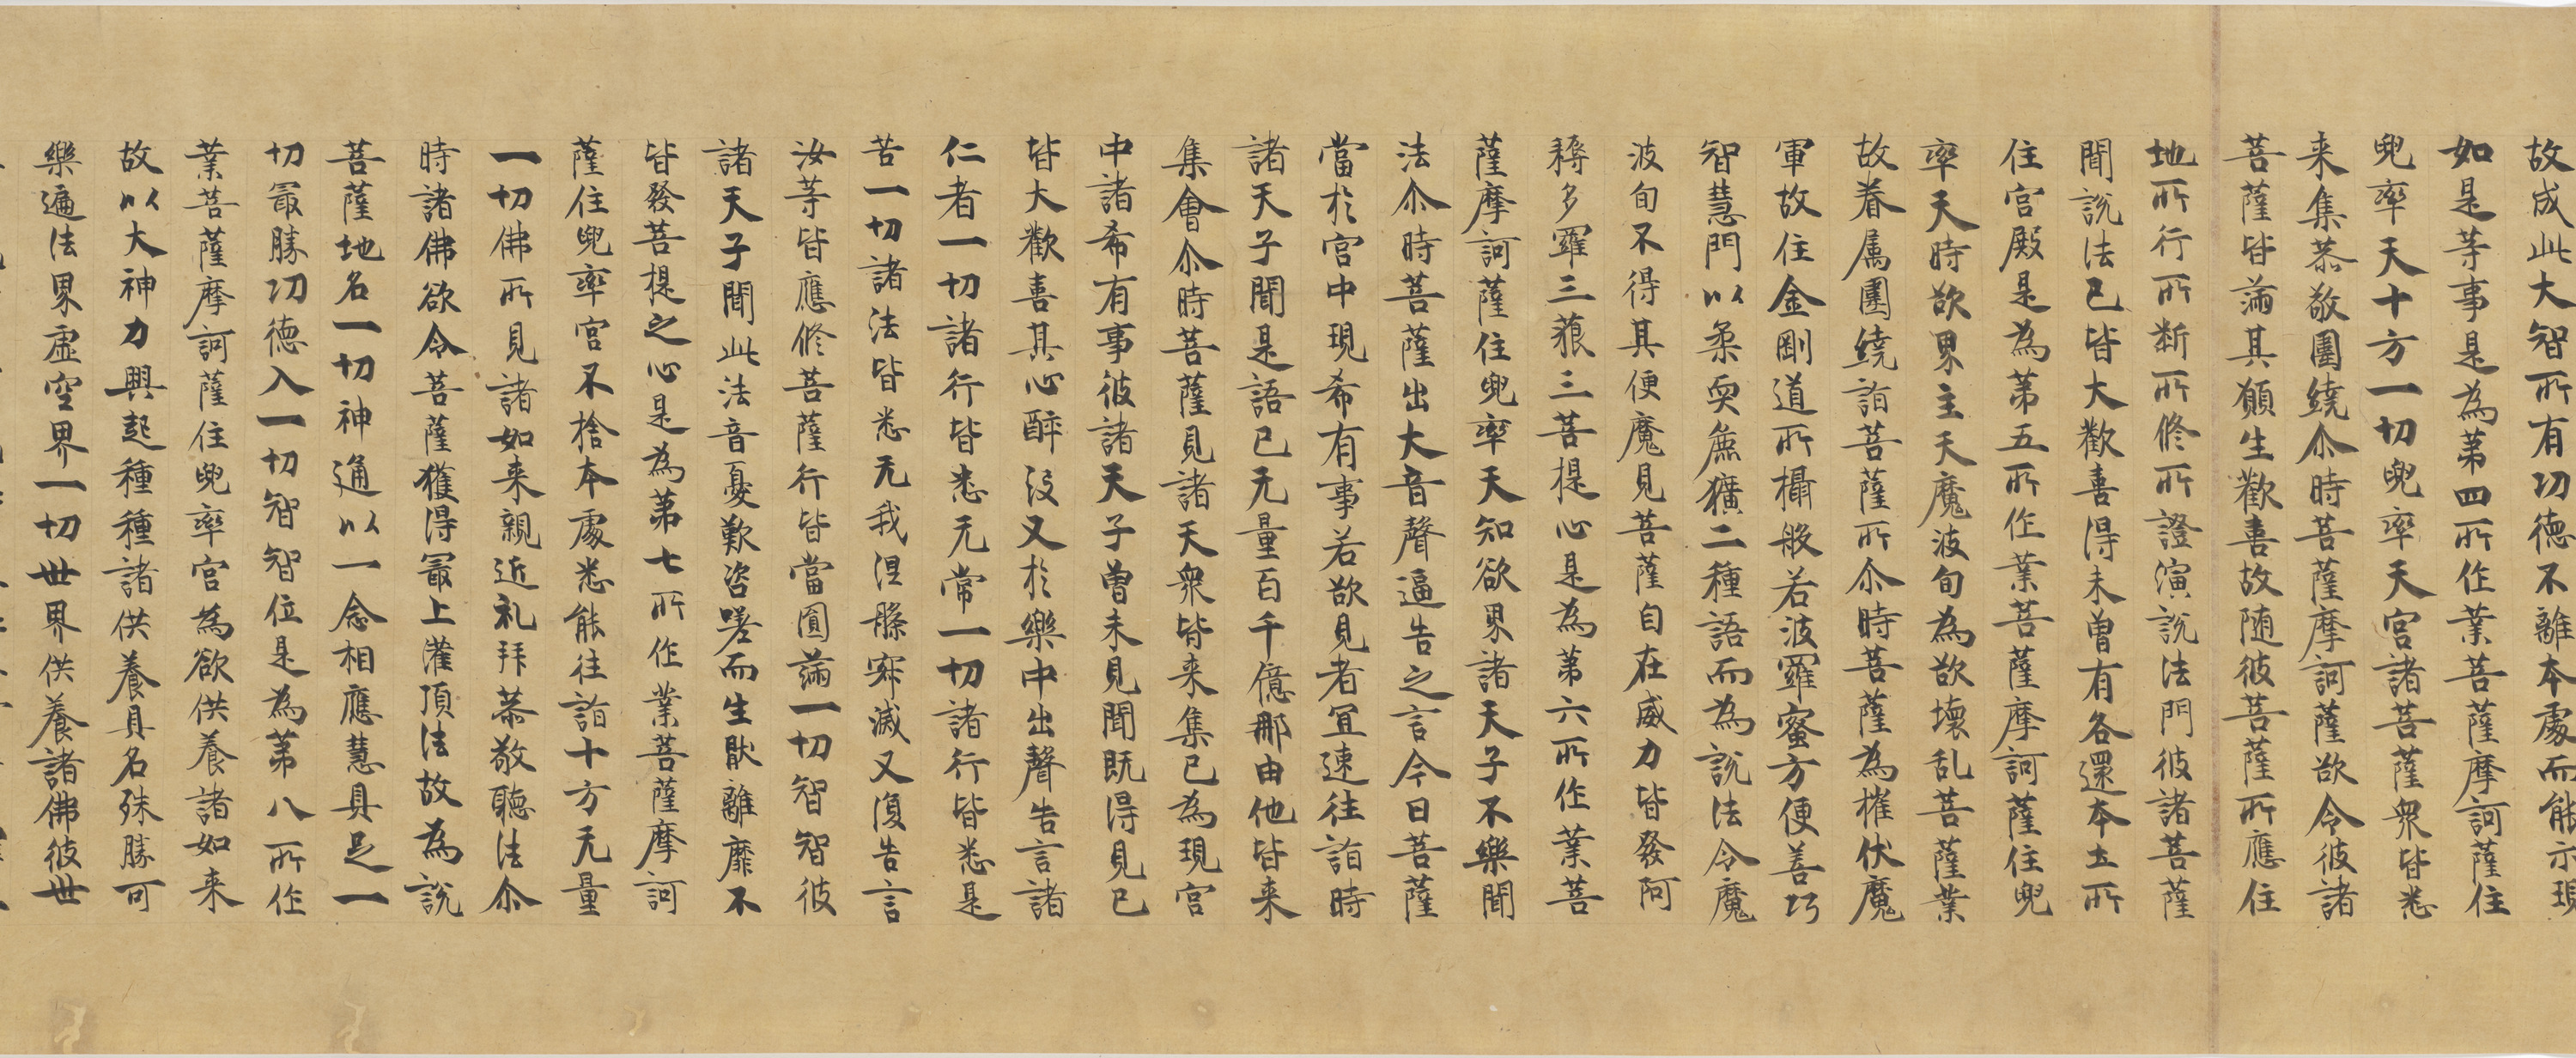 故成此大智所有功德不離本處而能示現
如是等事是為第四所作業菩薩摩訶薩住
兜率天十方一切兜率天宮諸菩薩眾皆悉
来集恭敬圍繞尒時菩薩摩訶薩欲令彼諸
菩薩皆滿其願生歡喜故随彼菩薩所應住
地所行所断所修所證演說法門彼諸菩薩
聞說法已皆大歡喜得未曾有各還本土所
住宮殿是為第五所作業菩薩摩訶薩住兜
率天時欲界主天魔波旬為欲壞乱菩薩業
故眷属圍繞詣菩薩所尒時菩薩為摧伏魔
軍故住金剛道所攝般若波羅蜜方便善巧
智慧門以柔耎麁獷二種語而為說法令魔
波旬不得其便魔見菩薩自在威力皆發阿
耨多羅三藐三菩提心是為第六所作業菩
薩摩訶薩住兜率天知欲界諸天子不樂聞
法尒時菩薩出大音聲遍告之言今日菩薩
當於宮中現希有事若欲見者冝速往詣時
諸天子聞是語已无量百千億那由他皆来
集會尒時菩薩見諸天衆皆来集已為現宮
中諸希有事彼諸天子曾未見聞既得見已
皆大歡喜其心醉没又於樂中出聲告言諸
仁者一切諸行皆悉无常一切諸行皆悉是
苦一切諸法皆悉无我涅槃寂滅又復告言
汝等皆應修菩薩行皆當圓滿一切智智彼
諸天子聞此法音憂歎咨嗟而生猒離靡不
皆發菩提之心是為第七所作業菩薩摩訶
薩住兜率宮不捨本處悉能往詣十方无量
一切佛所見諸如来親近礼拜恭敬聽法尒
時諸佛欲令菩薩獲得冣上灌頂法故為說
菩薩地名一切神通以一念相應慧具足一
切冣勝功德入一切智智位是為第八所作
業菩薩摩訶薩住兜率宮為欲供養諸如来
故以大神力興起種種諸供養具名殊勝可
樂遍法界虛空界一切世界供養諸佛彼世